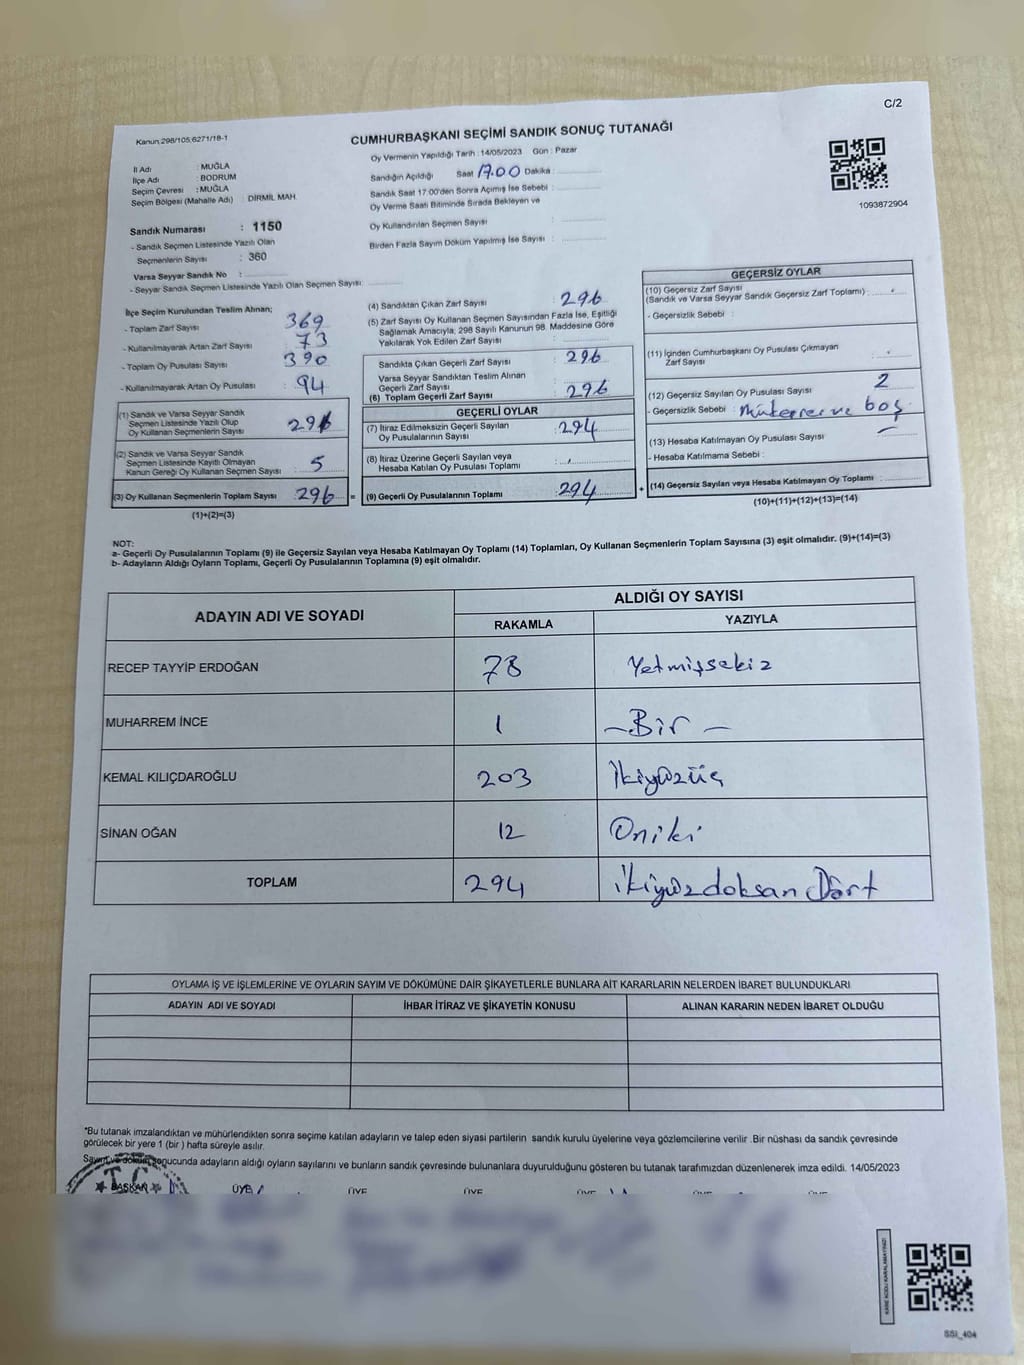 C/2
Kanun.298/105,6271/18-1
CUMHURBAŞKANI SEÇİMİ SANDIK SONUÇ TUTANAĞI
Oy Vermenin Yapıldığı Tarih : 14/05/2023 Gün : Pazar
İl Adı : MUĞLA
İlçe Adı : BODRUM
Seçim Çevresi : MUĞLA
Seçim Bölgesi (Mahalle Adı) : DİRMİL MAH.
Sandığın Açıldığı Saat 17.00 Dakika :
Sandık Saat 17.00'den Sonra Açımış İse Sebebi :
Oy Verme Saati Bitiminde Sırada Bekleyen ve
Oy Kullandırılan Seçmen Sayısı :
Birden Fazla Sayım Döküm Yapılmış İse Sayısı :
1093872904
Sandık Numarası : 1150
- Sandık Seçmen Listesinde Yazılı Olan
Seçmenlerin Sayısı : 360
Varsa Seyyar Sandık No :
- Seyyar Sandık Seçmen Listesinde Yazılı Olan Seçmen Sayısı:
İlçe Seçim Kurulundan Teslim Alınan;
- Toplam Zarf Sayısı : 369
- Kullanılmayarak Artan Zarf Sayısı : 73
- Toplam Oy Pusulası Sayısı : 390
- Kullanılmayarak Artan Oy Pusulası : 94
(1) Sandık ve Varsa Seyyar Sandık
Seçmen Listesinde Yazılı Olup
Oy Kullanan Seçmenlerin Sayısı :
(2) Sandık ve Varsa Seyyar Sandık
Seçmen Listesinde Kayıtlı Olmayan
Kanun Gereği Oy Kullanan Seçmen Sayısı : 5
(3) Oy Kullanan Seçmenlerin Toplam Sayısı : 296 =
(1)+(2)=(3)
(4) Sandıktan Çıkan Zarf Sayısı : 296
(5) Zarf Sayısı Oy Kullanan Seçmen Sayısından Fazla İse, Eşitliği
Sağlamak Amacıyla, 298 Sayılı Kanunun 98. Maddesine Göre
Yakılarak Yok Edilen Zarf Sayısı :
Sandıkta Çıkan Geçerli Zarf Sayısı : 296
Varsa Seyyar Sandıktan Teslim Alınan
Geçerli Zarf Sayısı :
(6) Toplam Geçerli Zarf Sayısı : 296
GEÇERLİ OYLAR
(7) İtiraz Edilmeksizin Geçerli Sayılan
Oy Pusulalarının Sayısı : 294
(8) İtiraz Üzerine Geçerli Sayılan veya
Hesaba Katılan Oy Pusulası Toplamı :
(9) Geçerli Oy Pusulalarının Toplamı : 294 +
GEÇERSİZ OYLAR
(10) Geçersiz Zarf Sayısı
(Sandık ve Varsa Seyyar Sandık Geçersiz Zarf Toplamı) :
- Geçersizlik Sebebi :
(11) İçinden Cumhurbaşkanı Oy Pusulası Çıkmayan
Zarf Sayısı :
(12) Geçersiz Sayılan Oy Pusulası Sayısı : 2
- Geçersizlik Sebebi : ve boş
(13) Hesaba Katılmayan Oy Pusulası Sayısı :
- Hesaba Katılmama Sebebi :
(14) Geçersiz Sayılan veya Hesaba Katılmayan Oy Toplamı :
(10)+(11)+(12)+(13)=(14)
NOT:
a- Geçerli Oy Pusulalarının Toplamı (9) ile Geçersiz Sayılan veya Hesaba Katılmayan Oy Toplamı (14) Toplamları, Oy Kullanan Seçmenlerin Toplam Sayısına (3) eşit olmalıdır. (9)+(14)=(3)
b- Adayların Aldığı Oyların Toplamı, Geçerli Oy Pusulalarının Toplamına (9) eşit olmalıdır.
ADAYIN ADI VE SOYADI
ALDIĞI OY SAYISI
RAKAMLA YAZIYLA
RECEP TAYYİP ERDOĞAN 78 Yetmişsekiz
MUHARREM İNCE 1 -Bir-
KEMAL KILIÇDAROĞLU 203 İkiyüzüç
SİNAN OĞAN 12 Oniki
TOPLAM 294 ikiyüzdoksan Dört
OYLAMA İŞ VE İŞLEMLERİNE VE OYLARIN SAYIM VE DÖKÜMÜNE DAİR ŞİKAYETLERLE BUNLARA AİT KARARLARIN NELERDEN İBARET BULUNDUKLARI
ADAYIN ADI VE SOYADI İHBAR İTİRAZ VE ŞİKAYETİN KONUSU ALINAN KARARIN NEDEN İBARET OLDUĞU
*Bu tutanak imzalandıktan ve mühürlendikten sonra seçime katılan adayların ve talep eden siyasi partilerin sandık kurulu üyelerine veya gözlemcilerine verilir .Bir nüshası da sandık çevresinde
görülecek bir yere 1 (bir ) hafta süreyle asılır.
Sayım ve döküm sonucunda adayların aldığı oyların sayılarını ve bunların sandık çevresinde bulunanlara duyurulduğunu gösteren bu tutanak tarafımızdan düzenlenerek imza edildi. 14/05/2023
T.C.
BAŞKAN ÜYE ÜYE ÜYE ÜYE ÜYE ÜYE
KARE KODU KARALAMAYINIZ!
SSI_404